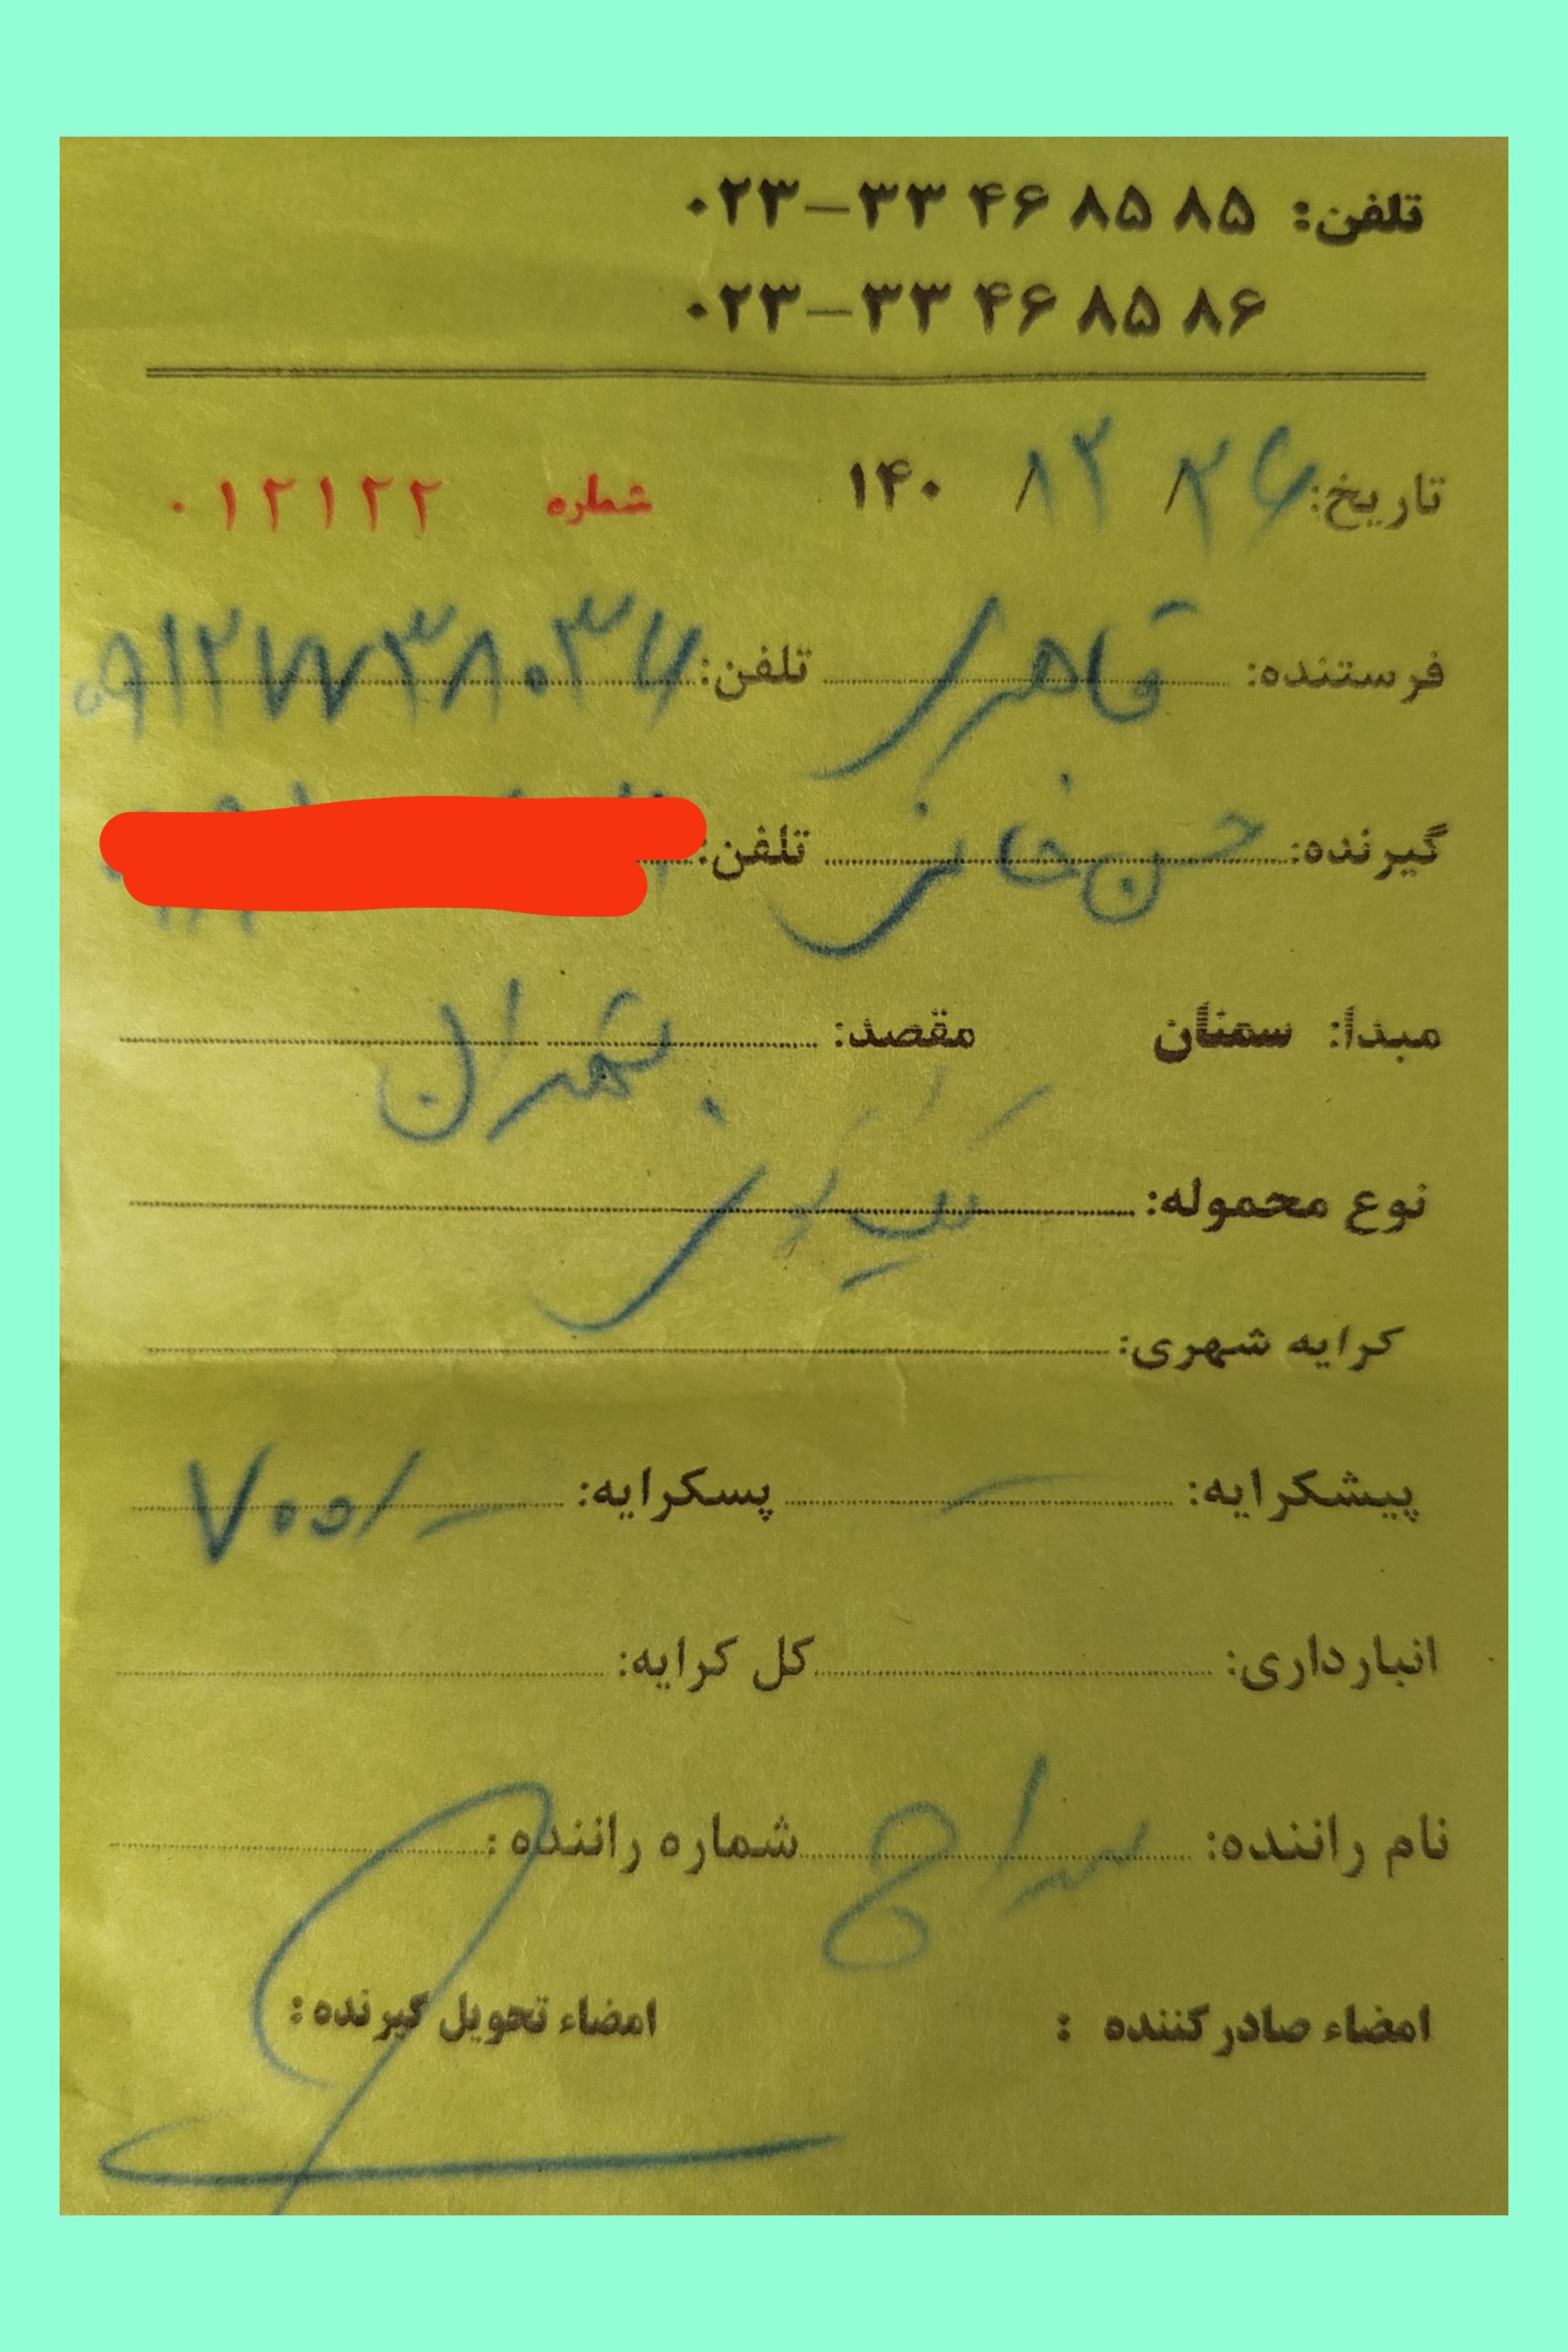 تلفن: ۰۲۳-۳۳ ۴۶ ۸۵ ۸۵
۰۲۳-۳۳ ۴۶ ۸۵ ۸۶
تاریخ: ۲۶ / ۱۲ / ۱۴۰ شماره ۰۱۲۱۲۲
فرستنده: تلفن:
گیرنده: حسن خانی تلفن:
مبدأ: سمنان مقصد: تهران
نوع محموله:
کرایه شهری:
پیشکرایه: - پسکرایه: ۷۰۰/-
انبارداری: کل کرایه:
نام راننده: سراج شماره راننده:
امضاء صادر کننده : امضاء تحویل گیرنده :